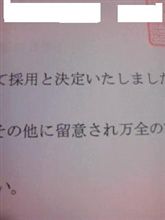 て採用と決定いたしました
その他に留意され万全の
い。